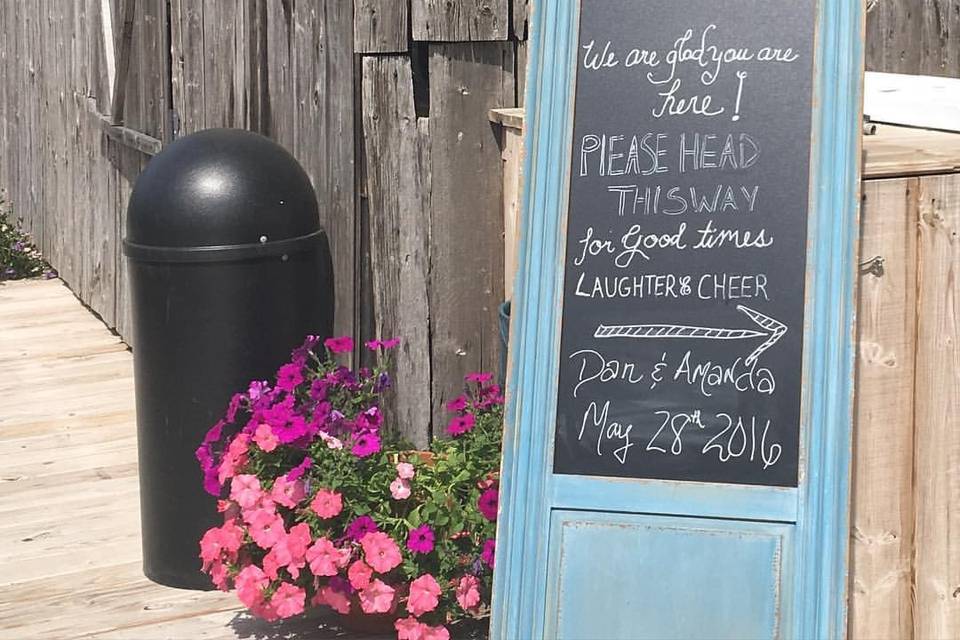 We are glad you are
here!
PLEASE HEAD
THIS WAY
for Good times
LAUGHTER & CHEER
Dan & Amanda
May 28th 2016